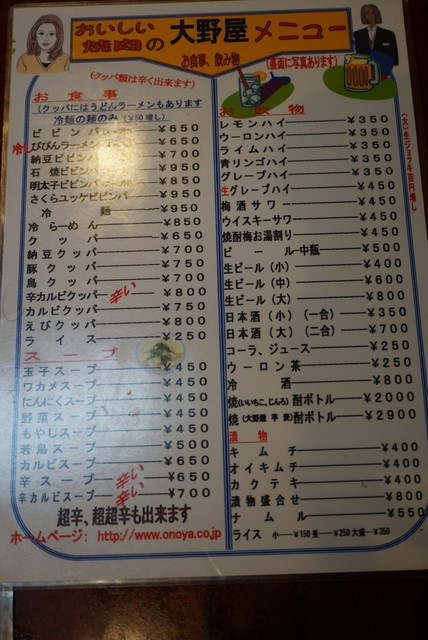 おいしい
焼肉の 大野屋 メニュー
お食事、飲み物
(クッパ類は辛く出来ます)
(裏面に写真あります)
お食事
(クッパにはうどんラーメンもあります
冷麺の麺のみ(￥50増し)
ビビンバ ￥650
冷 びびんラーメン ￥650
納豆ビビンバ ￥700
石焼ビビンバ ￥950
明太子ビビンバ ￥850
さくらユッケビビンバ ￥950
冷麺 ￥950
冷らーめん ￥850
クッパ ￥650
納豆クッパ ￥700
豚クッパ ￥750
鳥クッパ ￥700
辛カルビクッパ 辛い ￥800
カルビクッパ ￥750
えびクッパ ￥800
ライス ￥250
スープ
玉子スープ ￥450
ワカメスープ ￥450
にんにくスープ ￥450
野菜スープ ￥450
もやしスープ ￥450
若鳥スープ ￥500
カルビスープ ￥650
辛スープ 辛い ￥650
辛カルビスープ 辛い ￥700
超辛、超超辛も出来ます
ホームページ: http://www.onoya.co.jp
お飲物
(大)生ジョッキ百円増し
レモンハイ ￥350
ウーロンハイ ￥350
ライムハイ ￥350
青リンゴハイ ￥350
グレープハイ ￥350
生グレープハイ ￥450
梅酒サワー ￥450
ウイスキーサワー ￥450
焼酎梅お湯割り ￥450
ビール 中瓶 ￥500
生ビール(小) ￥400
生ビール(中) ￥600
生ビール(大) ￥800
日本酒(小)(一合) ￥350
日本酒(大)(二合) ￥700
コーラ、ジュース ￥250
ウーロン茶 ￥250
冷酒 ￥800
焼(いいちこ,じんろ)酎ボトル ￥2000
焼(大野屋 芋 麦)酎ボトル ￥2900
漬物
キムチ ￥400
オイキムチ ￥400
カクテキ ￥400
漬物盛合せ ￥800
ナムル ￥550
ライス 小 ￥150 並 ￥250 大盛 ￥350